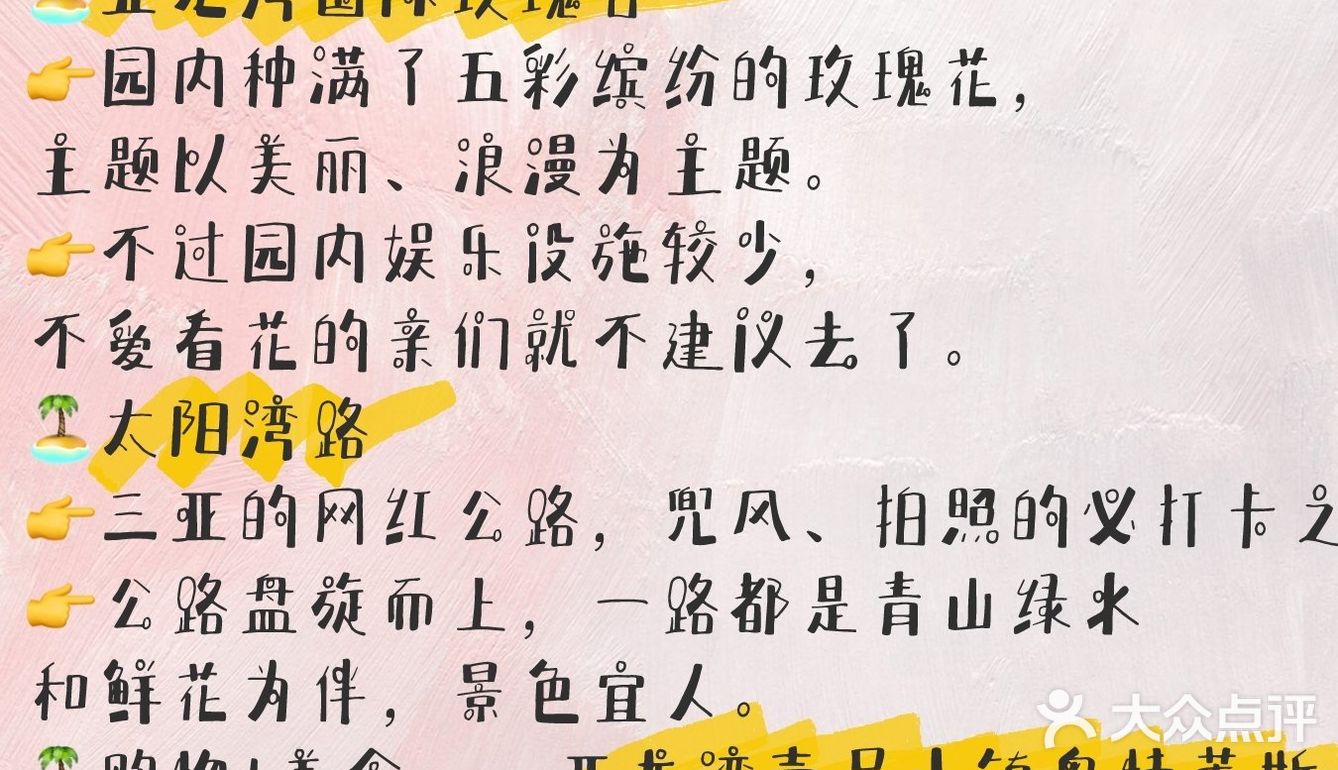 亚龙湾国际玫瑰谷
👉园内种满了五彩缤纷的玫瑰花，
主题以美丽、浪漫为主题。
👉不过园内娱乐设施较少，
不爱看花的亲们就不建议去了。
🏝太阳湾路
👉三亚的网红公路，兜风、拍照的必打卡之
👉公路盘旋而上，一路都是青山绿水
和鲜花为伴，景色宜人。
大众点评